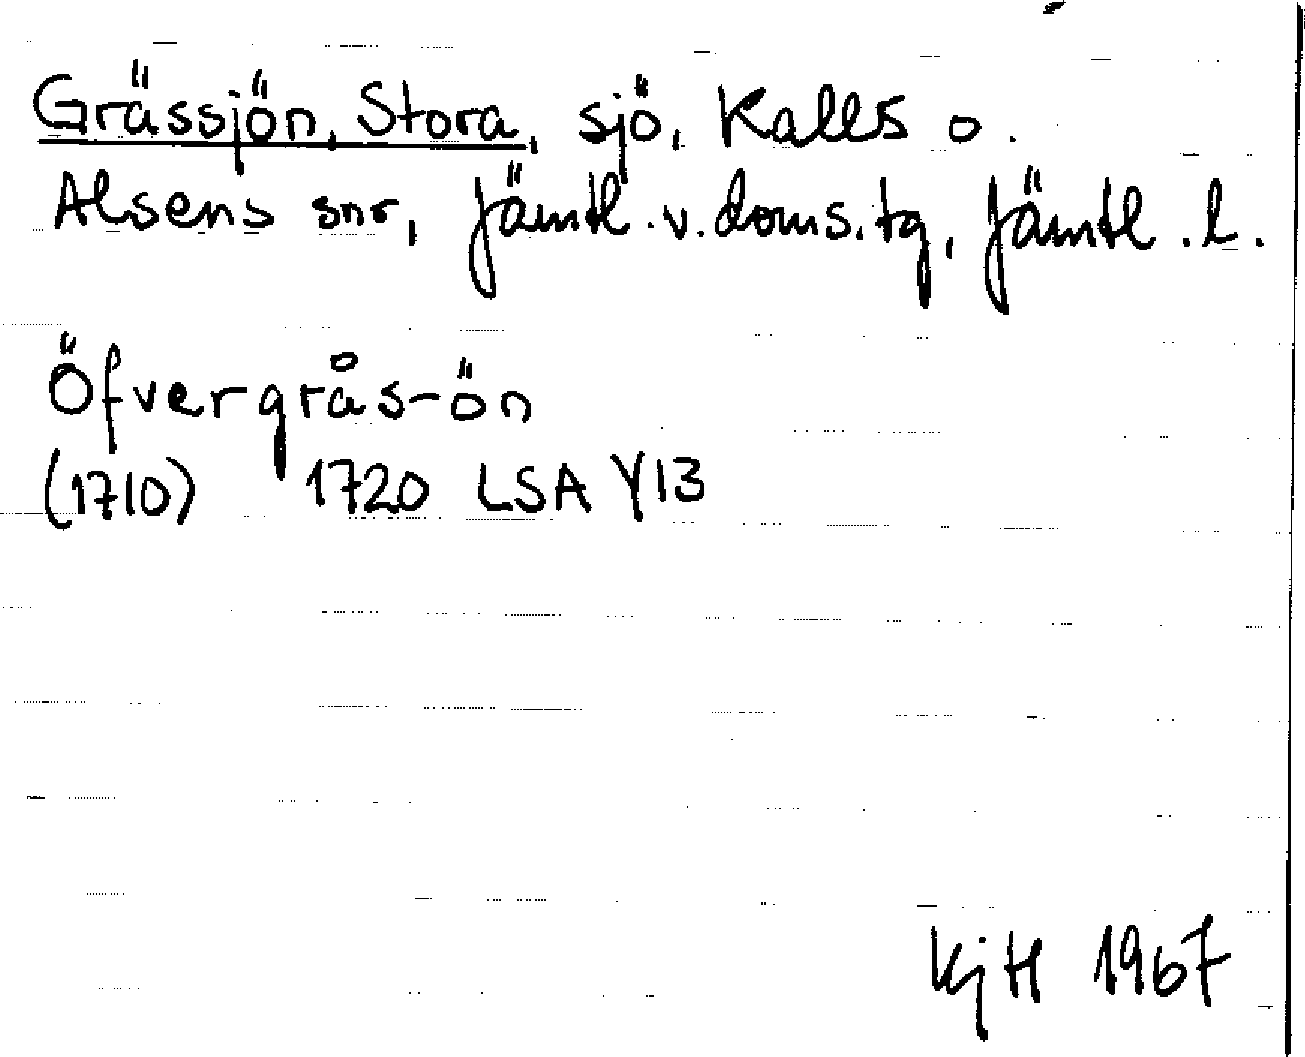 Grässjön, Stora, sjö, Kalls o.
Alsens snr, Jämtl. v. doms. tg, Jämtl. l.
Öfvergrås-ön
(1710) 1720 LSA Y13
KjH 1967